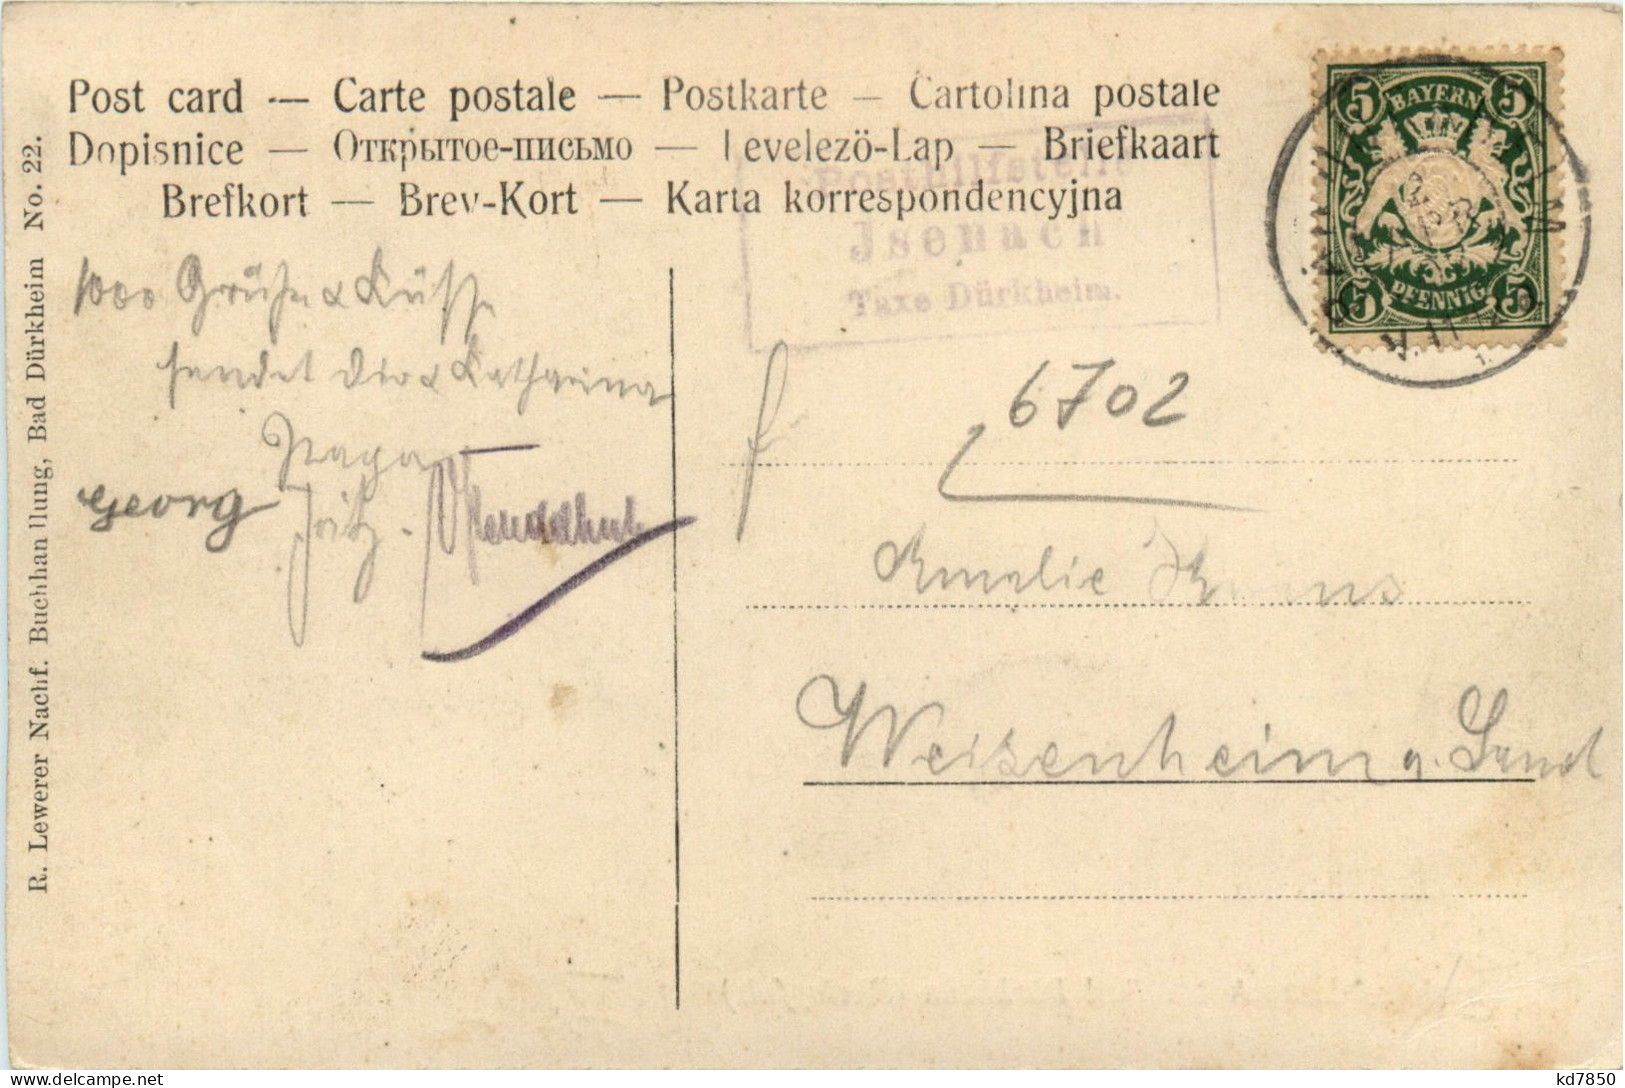 Post card — Carte postale — Postkarte — Cartolina postale
Dopisnice — Открытое-письмо — Levelezö-Lap — Briefkaart
Brefkort — Brev-Kort — Karta korrespondencyjna
Posthilfstelle
Jsenach
Taxe Dürkheim.
5 BAYERN 5
5 PFENNIG 5
1000 Grüße & Küsse
sendet Dir & Katharina
Papa
Georg Fritz.
6702
Amalie
Weisenheim a. Sand
R. Lewerer Nachf. Buchhandlung, Bad Dürkheim No. 22.
kd7850